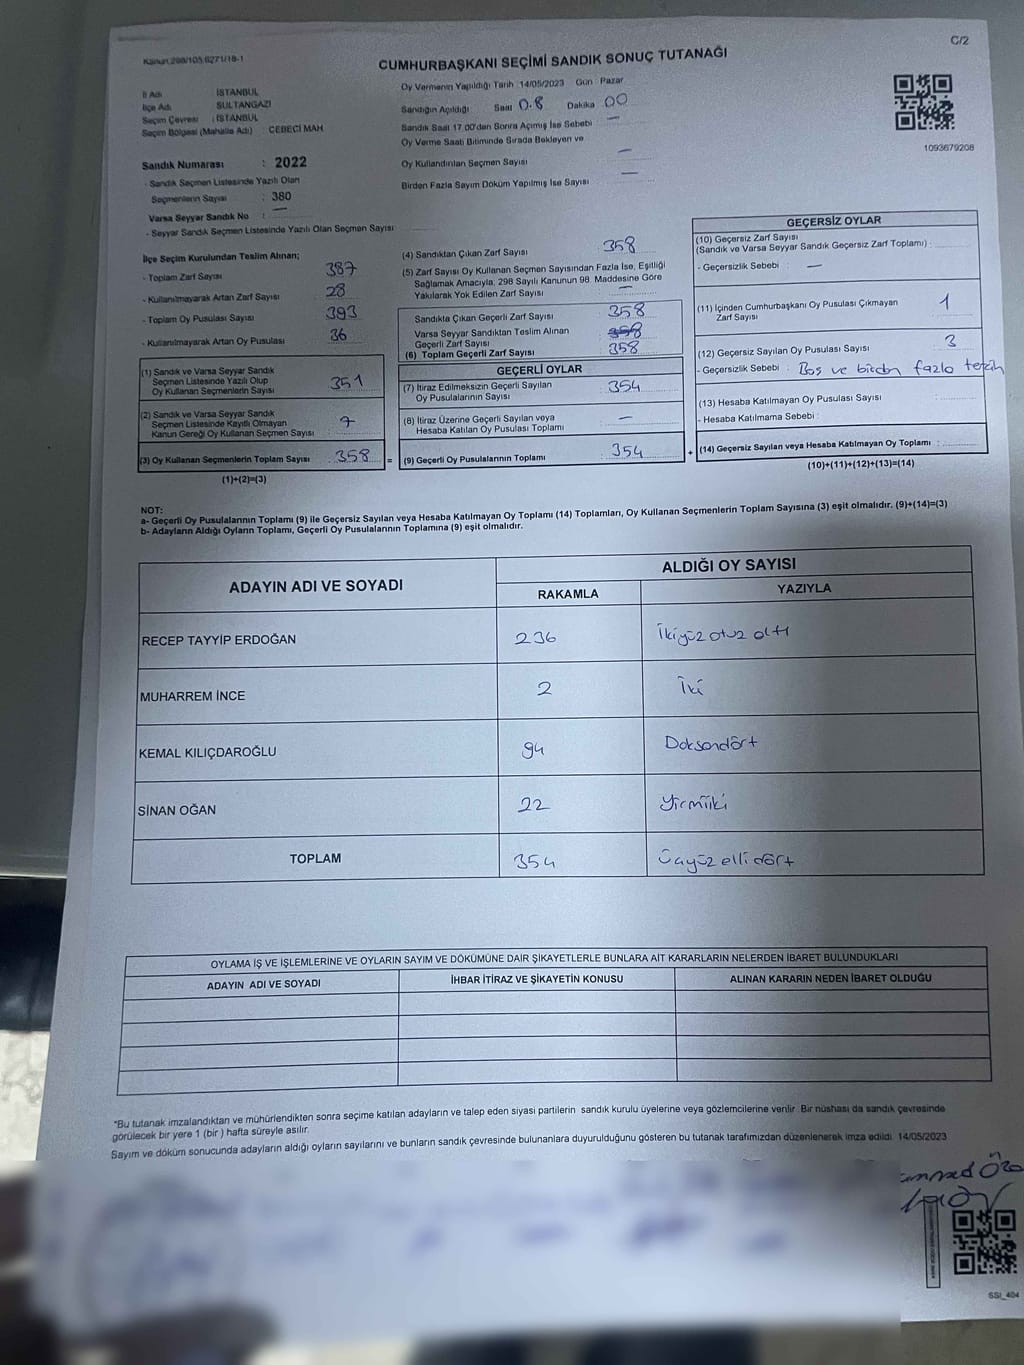 Kanun:298/105,6271/18-1
C/2
CUMHURBAŞKANI SEÇİMİ SANDIK SONUÇ TUTANAĞI
İl Adı : İSTANBUL
İlçe Adı : SULTANGAZİ
Seçim Çevresi : İSTANBUL
Seçim Bölgesi (Mahalle Adı) CEBECİ MAH
Sandık Numarası : 2022
- Sandık Seçmen Listesinde Yazılı Olan
Seçmenlerin Sayısı : 380
Varsa Seyyar Sandık No : —
- Seyyar Sandık Seçmen Listesinde Yazılı Olan Seçmen Sayısı
Oy Vermenin Yapıldığı Tarih :14/05/2023 Gün : Pazar
Sandığın Açıldığı: Saat 08 Dakika 00
Sandık Saat 17.00'den Sonra Açımış İse Sebebi —
Oy Verme Saati Bitiminde Sırada Bekleyen ve
Oy Kullandırılan Seçmen Sayısı —
Birden Fazla Sayım Döküm Yapılmış İse Sayısı —
1093679208
İlçe Seçim Kurulundan Teslim Alınan;
- Toplam Zarf Sayısı 387
- Kullanılmayarak Artan Zarf Sayısı 28
- Toplam Oy Pusulası Sayısı 393
- Kullanılmayarak Artan Oy Pusulası 36
(1) Sandık ve Varsa Seyyar Sandık
Seçmen Listesinde Yazılı Olup
Oy Kullanan Seçmenlerin Sayısı 351
(2) Sandık ve Varsa Seyyar Sandık
Seçmen Listesinde Kayıtlı Olmayan
Kanun Gereği Oy Kullanan Seçmen Sayısı 7
(3) Oy Kullanan Seçmenlerin Toplam Sayısı 358 =
(1)+(2)=(3)
(4) Sandıktan Çıkan Zarf Sayısı 358
(5) Zarf Sayısı Oy Kullanan Seçmen Sayısından Fazla İse, Eşitliği
Sağlamak Amacıyla, 298 Sayılı Kanunun 98. Maddesine Göre
Yakılarak Yok Edilen Zarf Sayısı —
Sandıkta Çıkan Geçerli Zarf Sayısı 358
Varsa Seyyar Sandıktan Teslim Alınan
Geçerli Zarf Sayısı
(6) Toplam Geçerli Zarf Sayısı 358
GEÇERLİ OYLAR
(7) İtiraz Edilmeksizin Geçerli Sayılan
Oy Pusulalarının Sayısı 354
(8) İtiraz Üzerine Geçerli Sayılan veya
Hesaba Katılan Oy Pusulası Toplamı —
(9) Geçerli Oy Pusulalarının Toplamı 354 +
GEÇERSİZ OYLAR
(10) Geçersiz Zarf Sayısı
(Sandık ve Varsa Seyyar Sandık Geçersiz Zarf Toplamı) :
- Geçersizlik Sebebi : —
(11) İçinden Cumhurbaşkanı Oy Pusulası Çıkmayan
Zarf Sayısı 1
(12) Geçersiz Sayılan Oy Pusulası Sayısı 3
- Geçersizlik Sebebi : Boş ve birden fazla tercih
(13) Hesaba Katılmayan Oy Pusulası Sayısı
- Hesaba Katılmama Sebebi :
(14) Geçersiz Sayılan veya Hesaba Katılmayan Oy Toplamı :
(10)+(11)+(12)+(13)=(14)
NOT:
a- Geçerli Oy Pusulalarının Toplamı (9) ile Geçersiz Sayılan veya Hesaba Katılmayan Oy Toplamı (14) Toplamları, Oy Kullanan Seçmenlerin Toplam Sayısına (3) eşit olmalıdır. (9)+(14)=(3)
b- Adayların Aldığı Oyların Toplamı, Geçerli Oy Pusulalarının Toplamına (9) eşit olmalıdır.
ADAYIN ADI VE SOYADI
ALDIĞI OY SAYISI
RAKAMLA YAZIYLA
RECEP TAYYİP ERDOĞAN 236 İkiyüz otuz altı
MUHARREM İNCE 2 İki
KEMAL KILIÇDAROĞLU 94 Doksandört
SİNAN OĞAN 22 Yirmiiki
TOPLAM 354 Üçyüz elli dört
OYLAMA İŞ VE İŞLEMLERİNE VE OYLARIN SAYIM VE DÖKÜMÜNE DAİR ŞİKAYETLERLE BUNLARA AİT KARARLARIN NELERDEN İBARET BULUNDUKLARI
ADAYIN ADI VE SOYADI İHBAR İTİRAZ VE ŞİKAYETİN KONUSU ALINAN KARARIN NEDEN İBARET OLDUĞU
*Bu tutanak imzalandıktan ve mühürlendikten sonra seçime katılan adayların ve talep eden siyasi partilerin sandık kurulu üyelerine veya gözlemcilerine verilir. Bir nüshası da sandık çevresinde
görülecek bir yere 1 (bir ) hafta süreyle asılır.
Sayım ve döküm sonucunda adayların aldığı oyların sayılarını ve bunların sandık çevresinde bulunanlara duyurulduğunu gösteren bu tutanak tarafımızdan düzenlenerek imza edildi. 14/05/2023
SSI_404